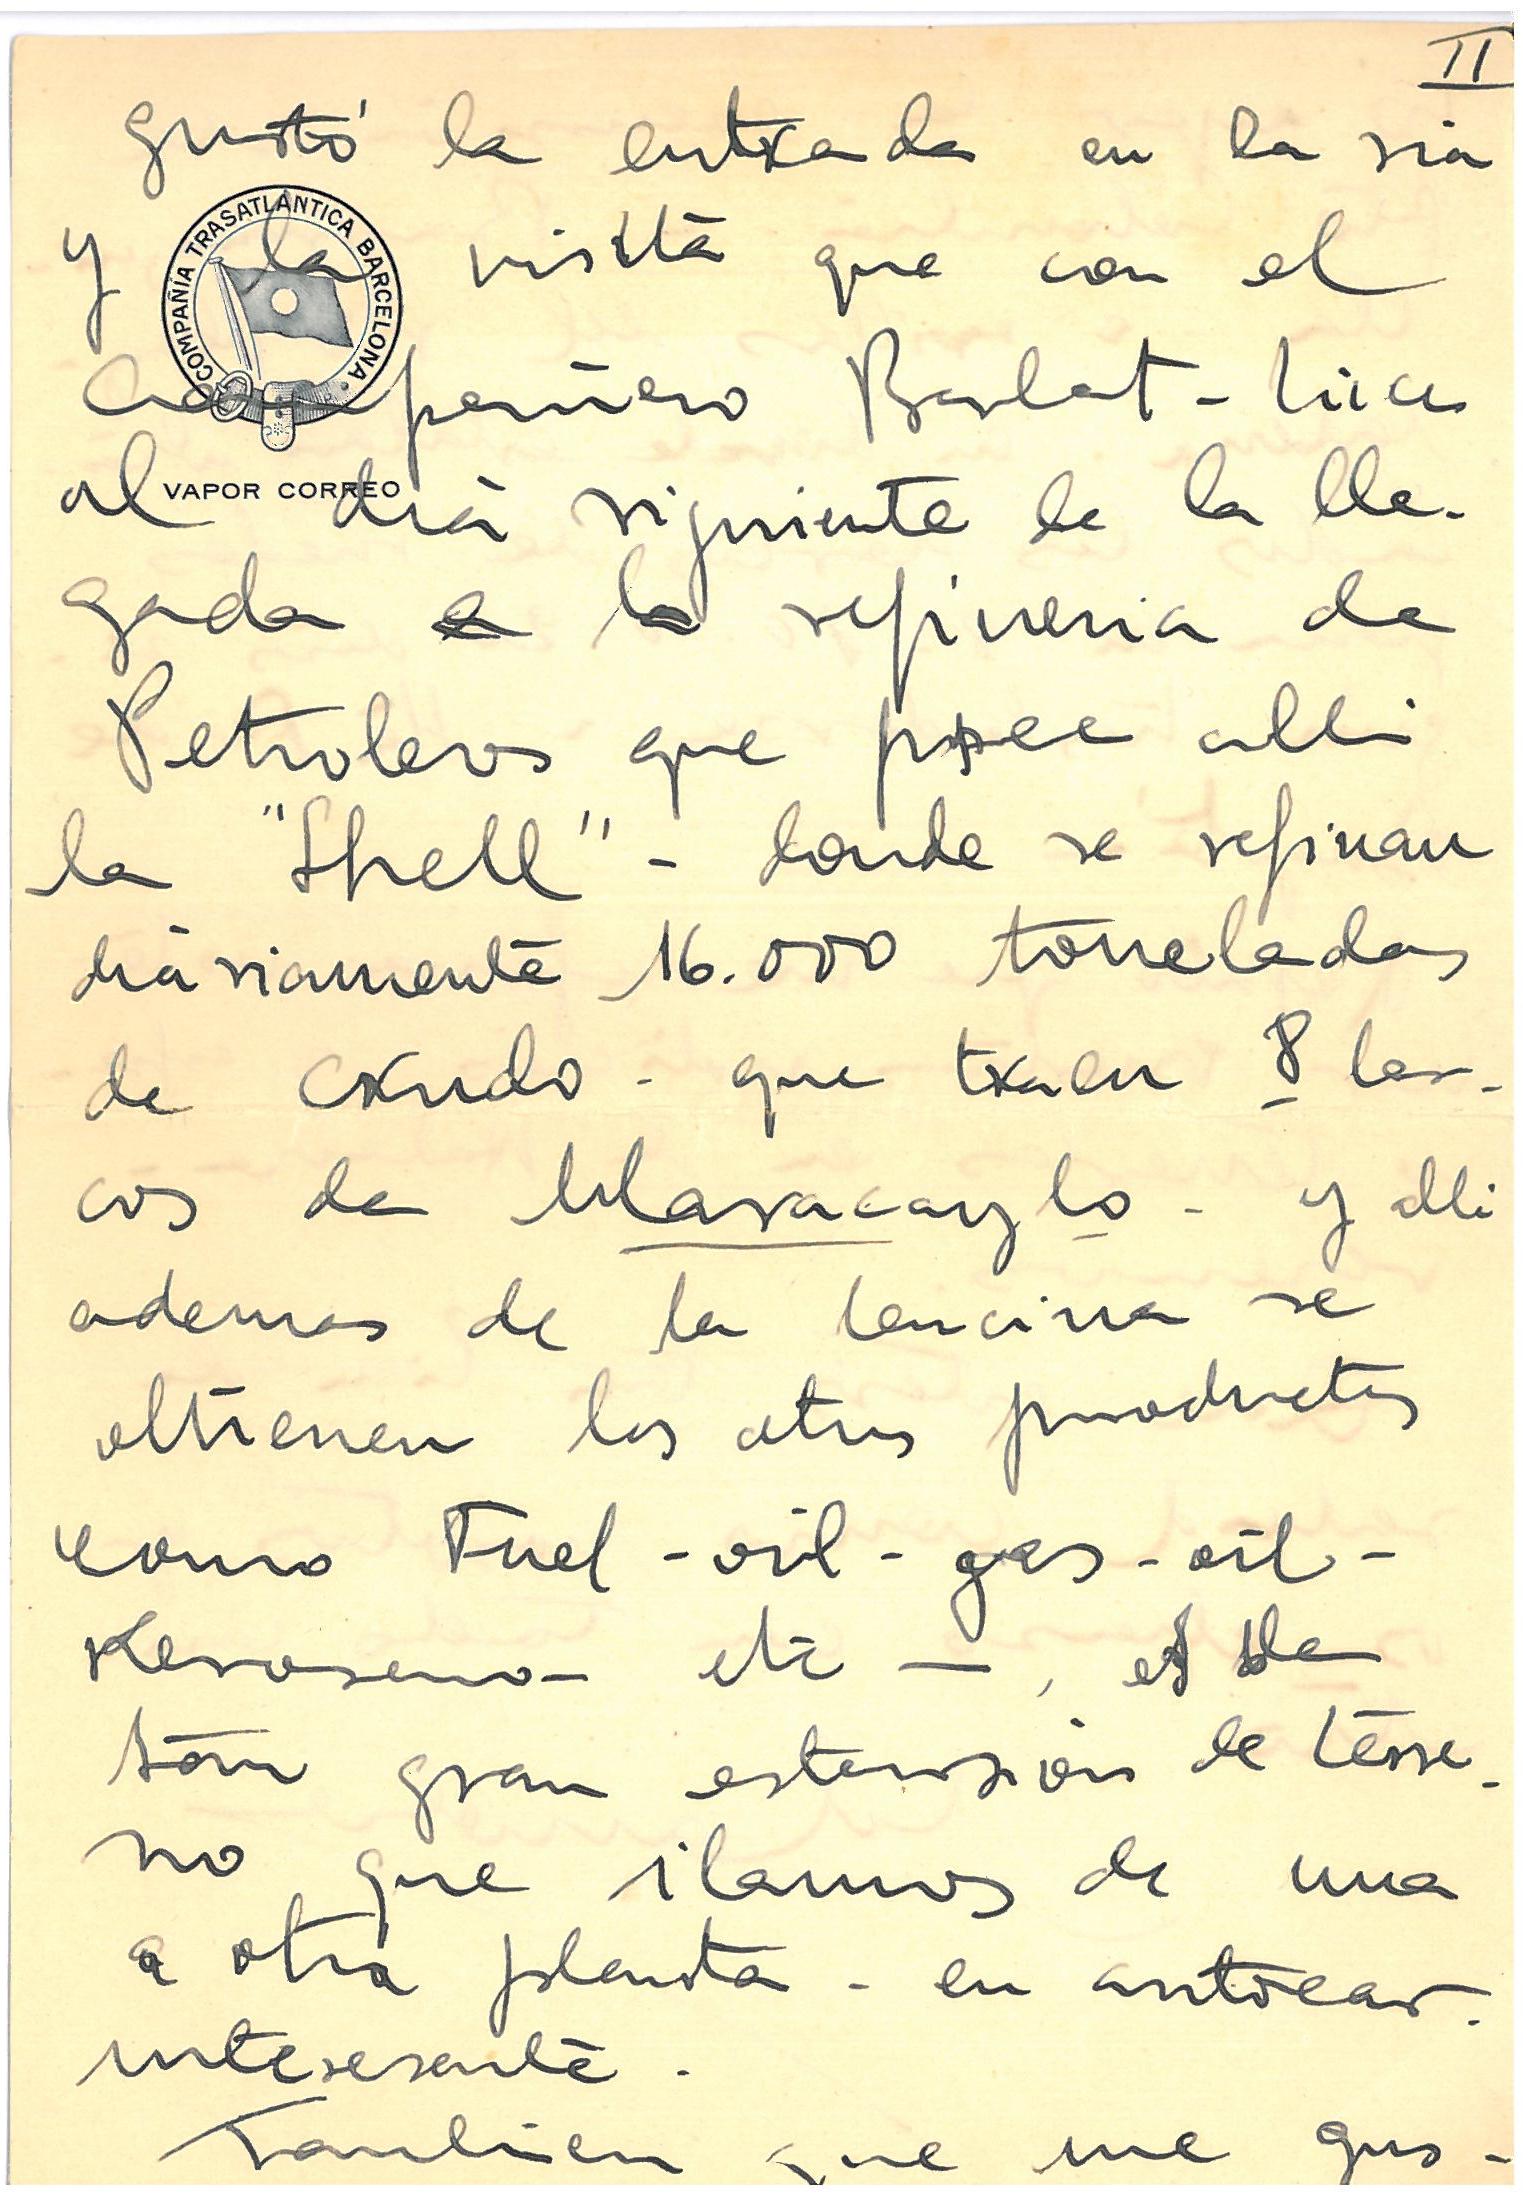 II
gustó la entrada en la ria
y la visita que con el
COMPAÑIA TRASATLÁNTICA BARCELONA
compañero hice
VAPOR CORREO
al dia siguiente de la lle-
gada a la refineria de
Petroleos que posee alli
la "Shell" - donde se refinan
diariamente 16.000 toneladas
de crudo - que traen 8 bar-
cos de Maracaybo - y alli
ademas de la bencina se
obtienen los otros productos
como Fuel-oil - gas-oil -
Keroseno - etc - , es de
tan gran estensión de terre-
no que ibamos de una
a otra planta - en autocar.
interesante.
Tambien que me gus-